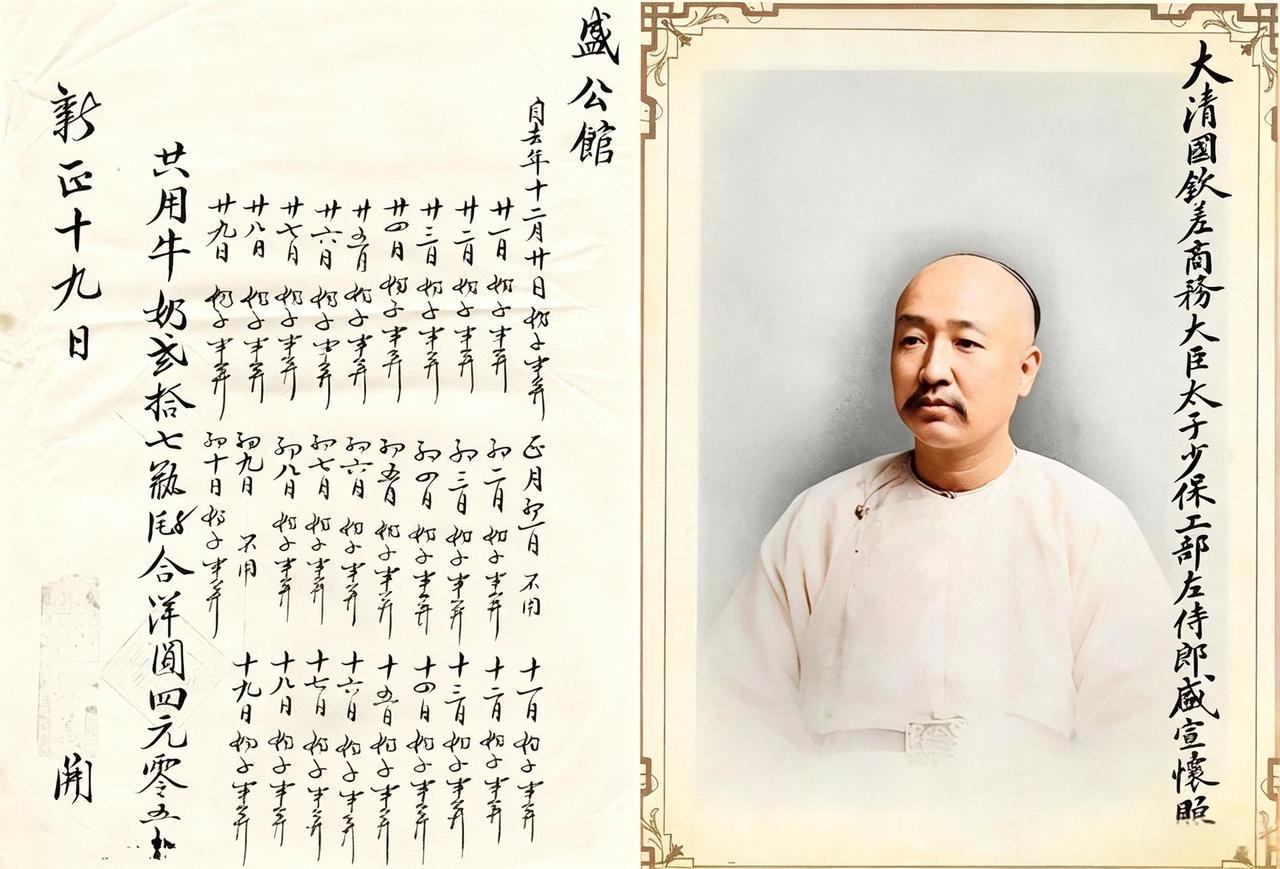 盛公館
自去年十二月廿日 奶子半并
廿一日 奶子半并
廿二日 奶子半并
廿三日 奶子半并
廿四日 奶子半并
廿五日 奶子半并
廿六日 奶子半并
廿七日 奶子半并
廿八日 奶子半并
廿九日 奶子半并
正月初一日 不用
初二日 奶子半并
初三日 奶子半并
初四日 奶子半并
初五日 奶子半并
初六日 奶子半并
初七日 奶子半并
初八日 奶子半并
初九日 不用
初十日 奶子半并
十一日 奶子半并
十二日 奶子半并
十三日 奶子半并
十四日 奶子半并
十五日 奶子半并
十六日 奶子半并
十七日 奶子半并
十八日 奶子半并
十九日 奶子半并
共用牛奶弍拾七瓶 合洋圓四元零五
新正十九日 開
大清國欽差商務大臣太子少保工部左侍郎盛宣懷照